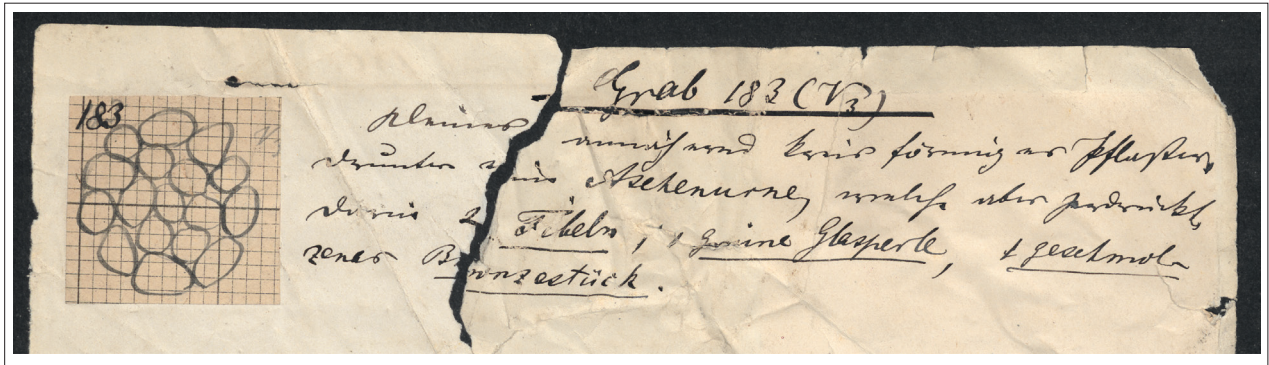 183
Grab 183 (V3)
Kleines annähernd kreisförmiges Pflaster,
drunter eine Aschenurne, welche aber zerdrückt,
darin 2 Fibeln, 1 grüne Glasperle, 1 geschmol-
zenes Bronzestück.